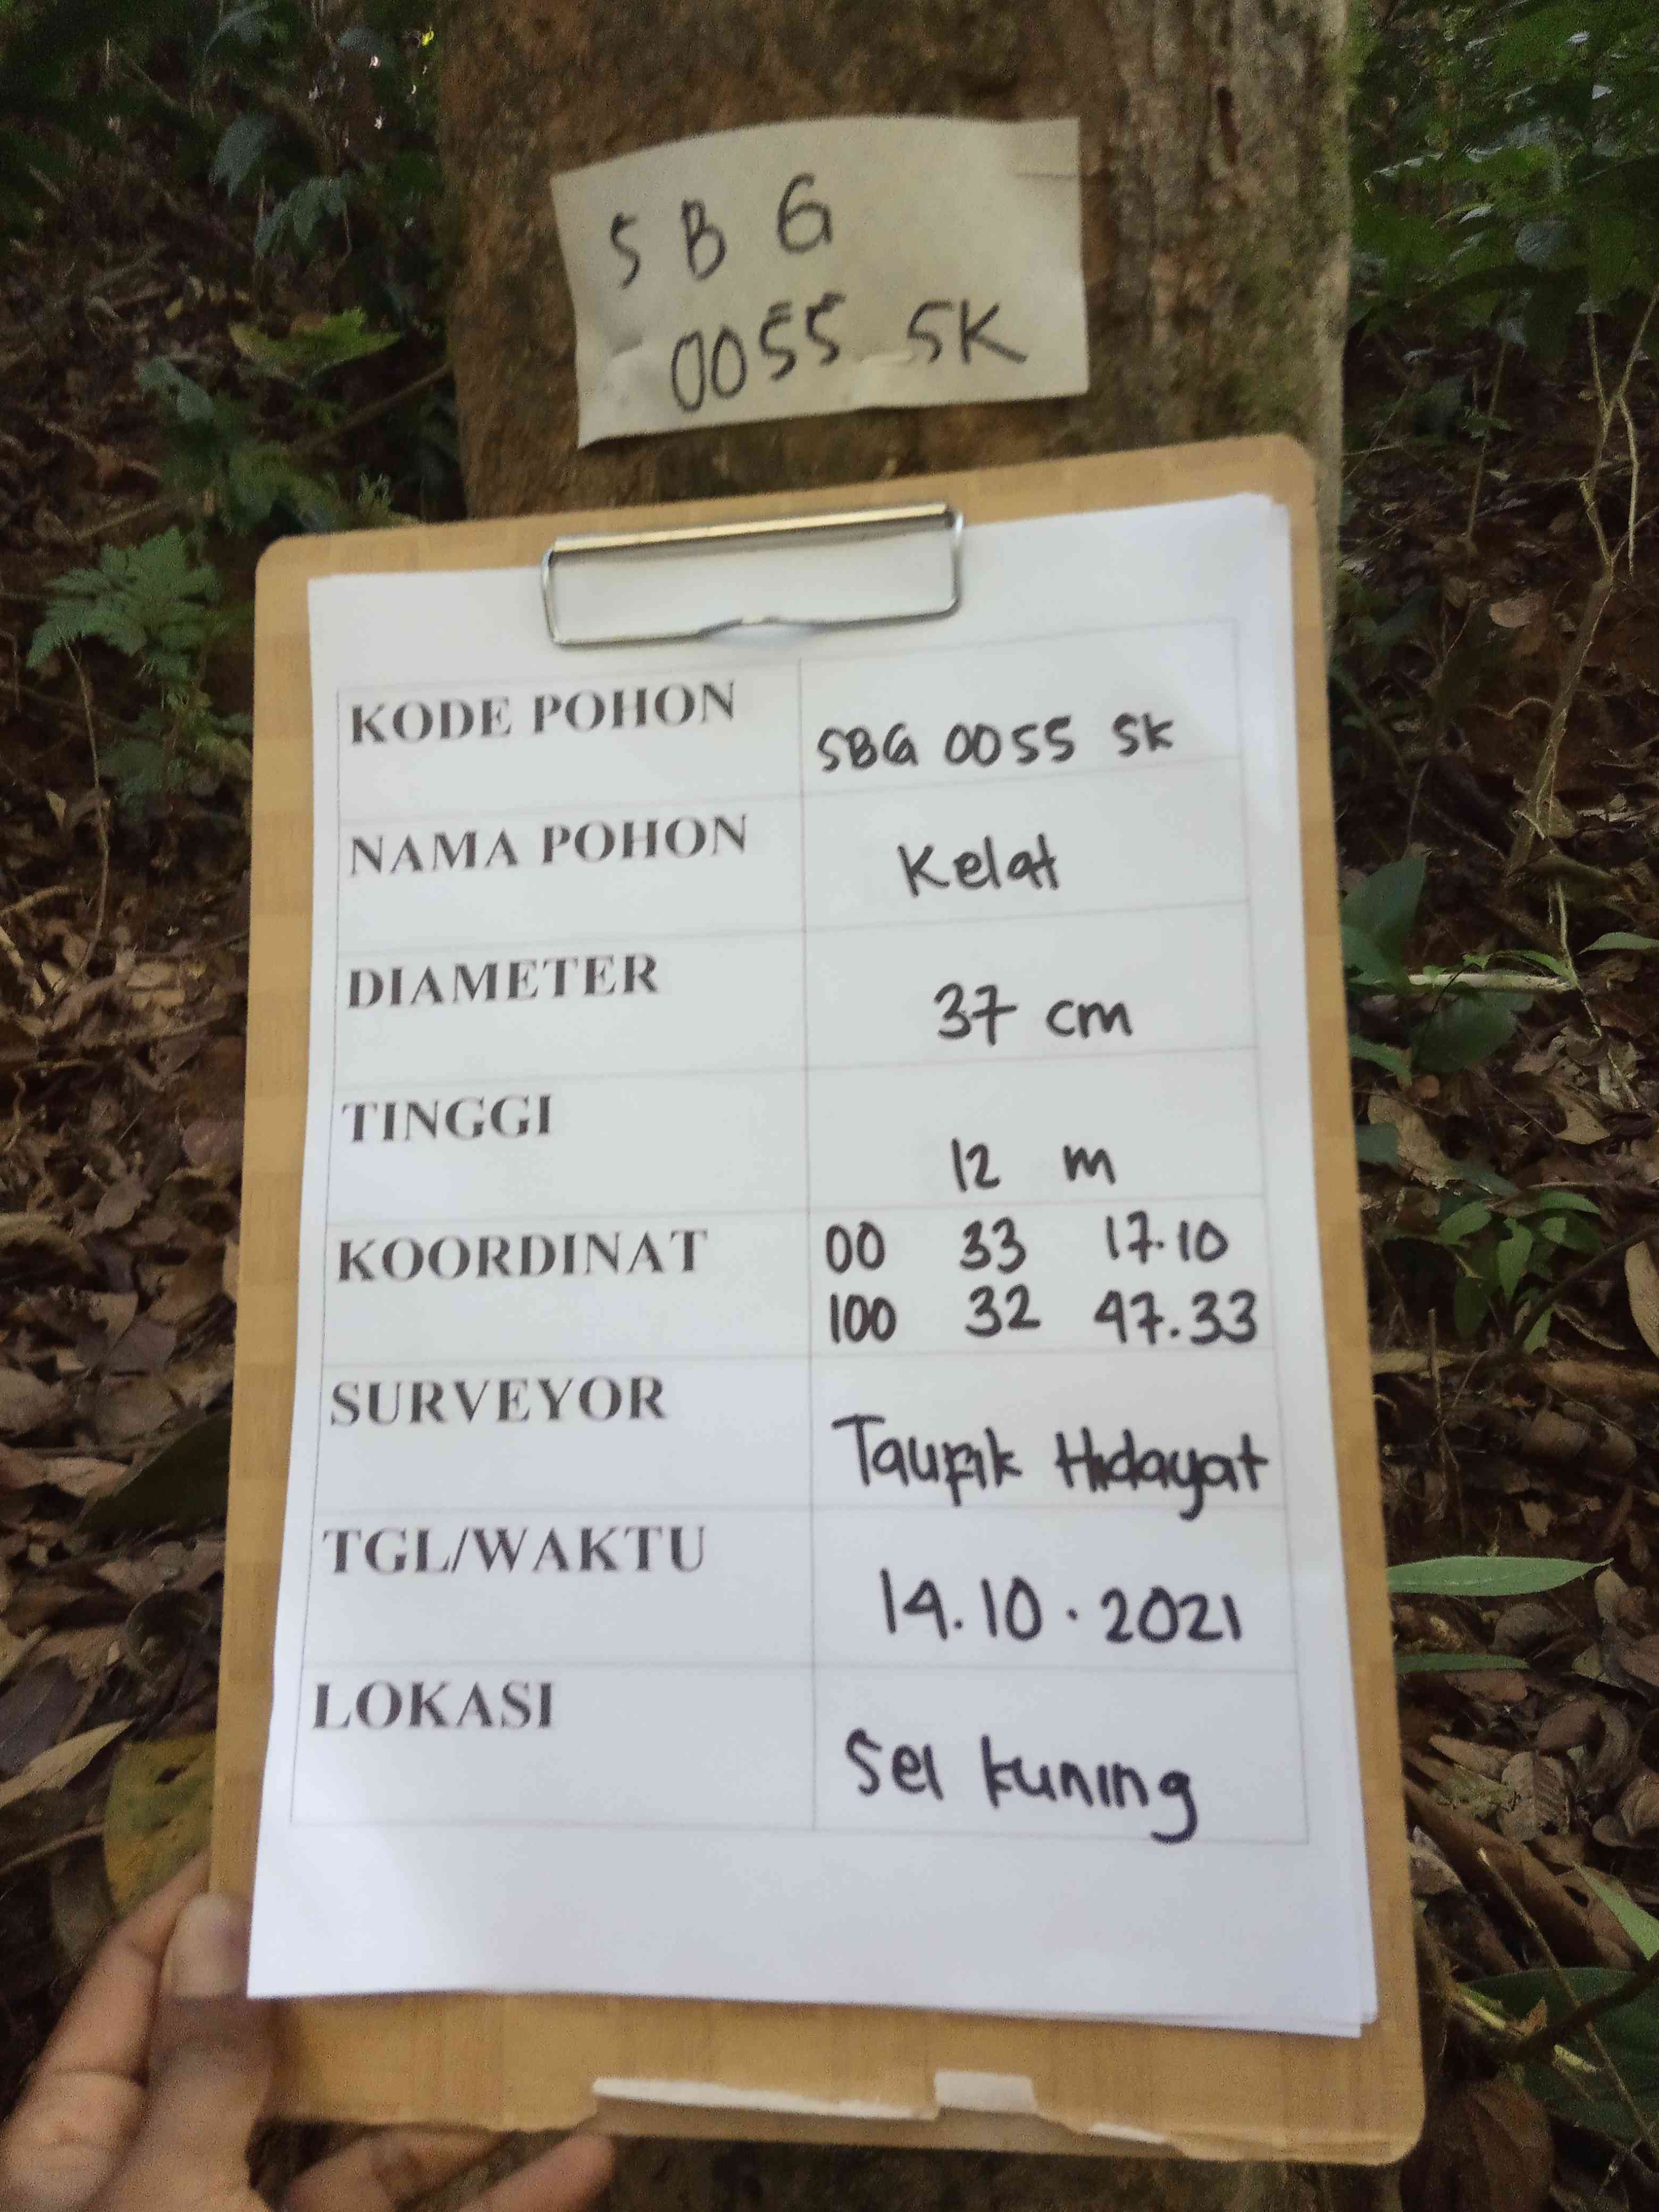 SBG
0055 SK
KODE POHON SBG 0055 SK
NAMA POHON Kelat
DIAMETER 37 cm
TINGGI 12 m
KOORDINAT 00 33 17.10
100 32 47.33
SURVEYOR Taufik Hidayat
TGL/WAKTU 14.10.2021
LOKASI Sei kuning